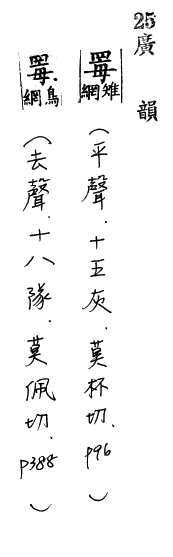 25廣韻
䍙 雉網（平聲．十五灰．莫杯切．p96）
䍙 鳥網（去聲．十八隊．莫佩切．p388）